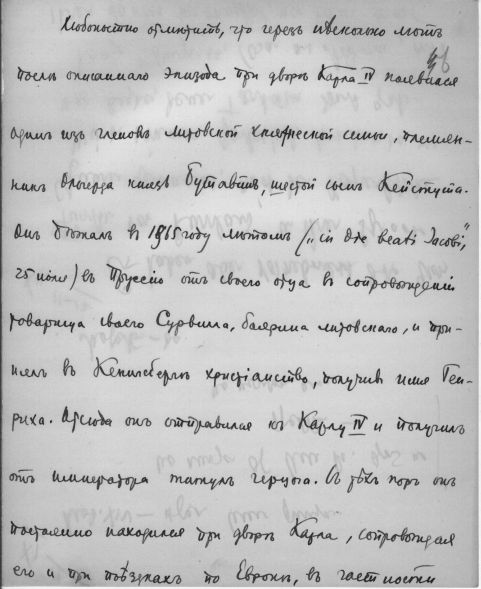 Любопытно отмѣтить, что черезъ нѣсколько лѣтъ
послѣ описаннаго эпизода при дворѣ Карла IV появился
одинъ изъ членовъ литовской княжеской семьи, племян-
никъ Ольгерда князь Бутавтъ, шестой сынъ Кейстута.
Онъ бѣжалъ въ 1365 году лѣтомъ („in die beati Jacobi",
25 июля) въ Пруссію отъ своего отца въ сопровожденіи
товарища своего Сурвилла, боярина литовскаго, и при-
нялъ въ Кенигсбергѣ христіанство, получивъ имя Ген-
риха. Отсюда онъ отправился къ Карлу IV и получилъ
отъ императора титулъ герцога. Съ тѣхъ поръ онъ
постоянно находился при дворѣ Карла, сопровождая
его и при поѣздкахъ по Европѣ, въ частности